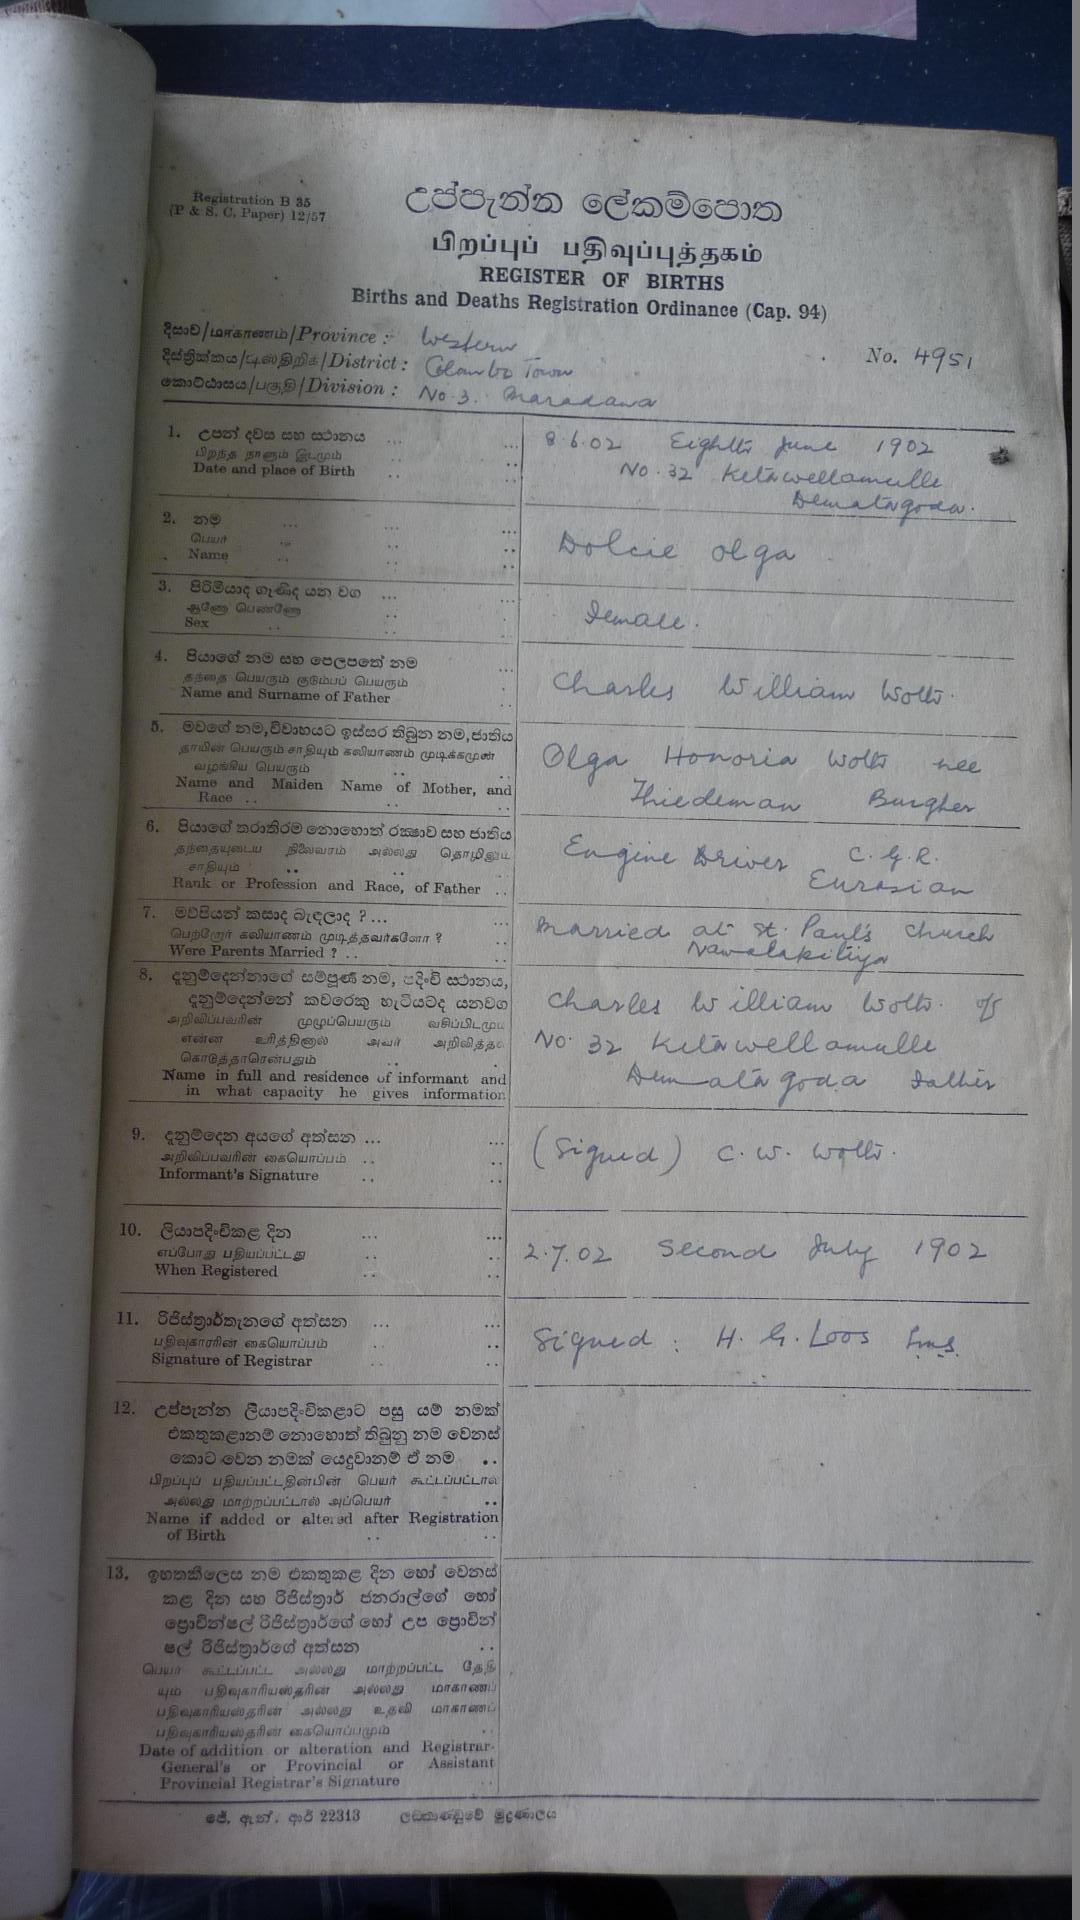 Registration B 35
(P & S. C. Paper) 12/57
උප්පැන්න ලේකම්පොත
பிறப்புப் பதிவுப்புத்தகம்
REGISTER OF BIRTHS
Births and Deaths Registration Ordinance (Cap. 94)
දිසාව/மாகாணம்/Province : Western
No. 4951
දිස්ත්‍රික්කය/டிஸ்திறிக்/District : Colombo Town
කොට්ඨාසය/பகுதி/Division : No. 3. Maradana
1. උපන් දවස සහ ස්ථානය ...
பிறந்த நாளும் இடமும்
Date and place of Birth
8.6.02 Eighth June 1902
No. 32 Ketawellamulle
Dematagoda.
2. නම ...
பெயர்
Name
Dolcie Olga
3. පිරිමියාද ගැණිද යන වග ...
ஆணோ பெண்ணோ
Sex
Female.
4. පියාගේ නම සහ පෙලපතේ නම
தந்தை பெயரும் குடும்பப் பெயரும்
Name and Surname of Father
Charles William Wolth.
5. මවගේ නම, විවාහයට ඉස්සර තිබුන නම, ජාතිය
தாயின் பெயரும் சாதியும் கலியாணம் முடிக்கமுன்
வழங்கிய பெயரும்
Name and Maiden Name of Mother, and
Race ..
Olga Honoria Wolth nee
Thiedeman Burgher
6. පියාගේ තරාතිරම නොහොත් රක්ෂාව සහ ජාතිය
தந்தையுடைய நிலைவரம் அல்லது தொழிலும்
சாதியும்
Rank or Profession and Race, of Father ..
Engine Driver C. G. R.
Eurasian
7. මව්පියන් කසාද බැඳලාද ? ...
பெற்றோர் கலியாணம் முடித்தவர்களோ ?
Were Parents Married ? ..
Married at St. Paul's Church
Nawalapitiya
8. දැනුම්දෙන්නාගේ සම්පූර්ණ නම, පදිංචි ස්ථානය,
දැනුම්දෙන්නේ කවරෙකු හැටියටද යනවග
அறிவிப்பவரின் முழுப்பெயரும் வசிப்பிடமும்
என்ன உரித்தினால் அவர் அறிவித்தல்
கொடுத்தாரென்பதும்
Name in full and residence of informant and
in what capacity he gives information
Charles William Wolth. of
No. 32 Ketawellamulle
Dematagoda Father
9. දැනුම්දෙන අයගේ අත්සන ...
அறிவிப்பவரின் கையொப்பம் ..
Informant's Signature
(Signed) C. W. Wolth.
10. ලියාපදිංචිකළ දින ...
எப்போது பதியப்பட்டது
When Registered
2.7.02 Second July 1902
11. රිජිස්ත්‍රාර්තැනගේ අත්සන ...
பதிவுகாரரின் கையொப்பம்
Signature of Registrar
Signed : H. G. Loos
12. උප්පැන්න ලියාපදිංචිකළාට පසු යම් නමක්
එකතුකළානම් නොහොත් තිබුනු නම වෙනස්
කොට වෙන නමක් යෙදුවානම් ඒ නම ..
பிறப்புப் பதியப்பட்டதின்பின் பெயர் கூட்டப்பட்டால்
அல்லது மாற்றப்பட்டால் அப்பெயர் ..
Name if added or altered after Registration
of Birth
13. ඉහතකීලෙස නම එකතුකළ දින හෝ වෙනස්
කළ දින සහ රිජිස්ත්‍රාර් ජනරාල්ගේ හෝ
ප්‍රොවින්ෂල් රිජිස්ත්‍රාර්ගේ හෝ උප ප්‍රොවින්
ෂල් රිජිස්ත්‍රාර්ගේ අත්සන
பெயர் கூட்டப்பட்ட அல்லது மாற்றப்பட்ட தேதி
யும் பதிவுகாரியஸ்தரின் அல்லது மாகாணப்
பதிவுகாரியஸ்தரின் அல்லது உதவி மாகாணப்
பதிவுகாரியஸ்தரின் கையொப்பமும்
Date of addition or alteration and Registrar-
General's or Provincial or Assistant
Provincial Registrar's Signature
ජේ. ඇන්. ආර් 22313 ලඞකාණ්ඩුවේ මුද්‍රණාලය